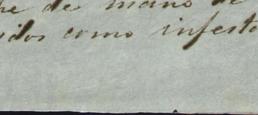 de mano de
como infesta